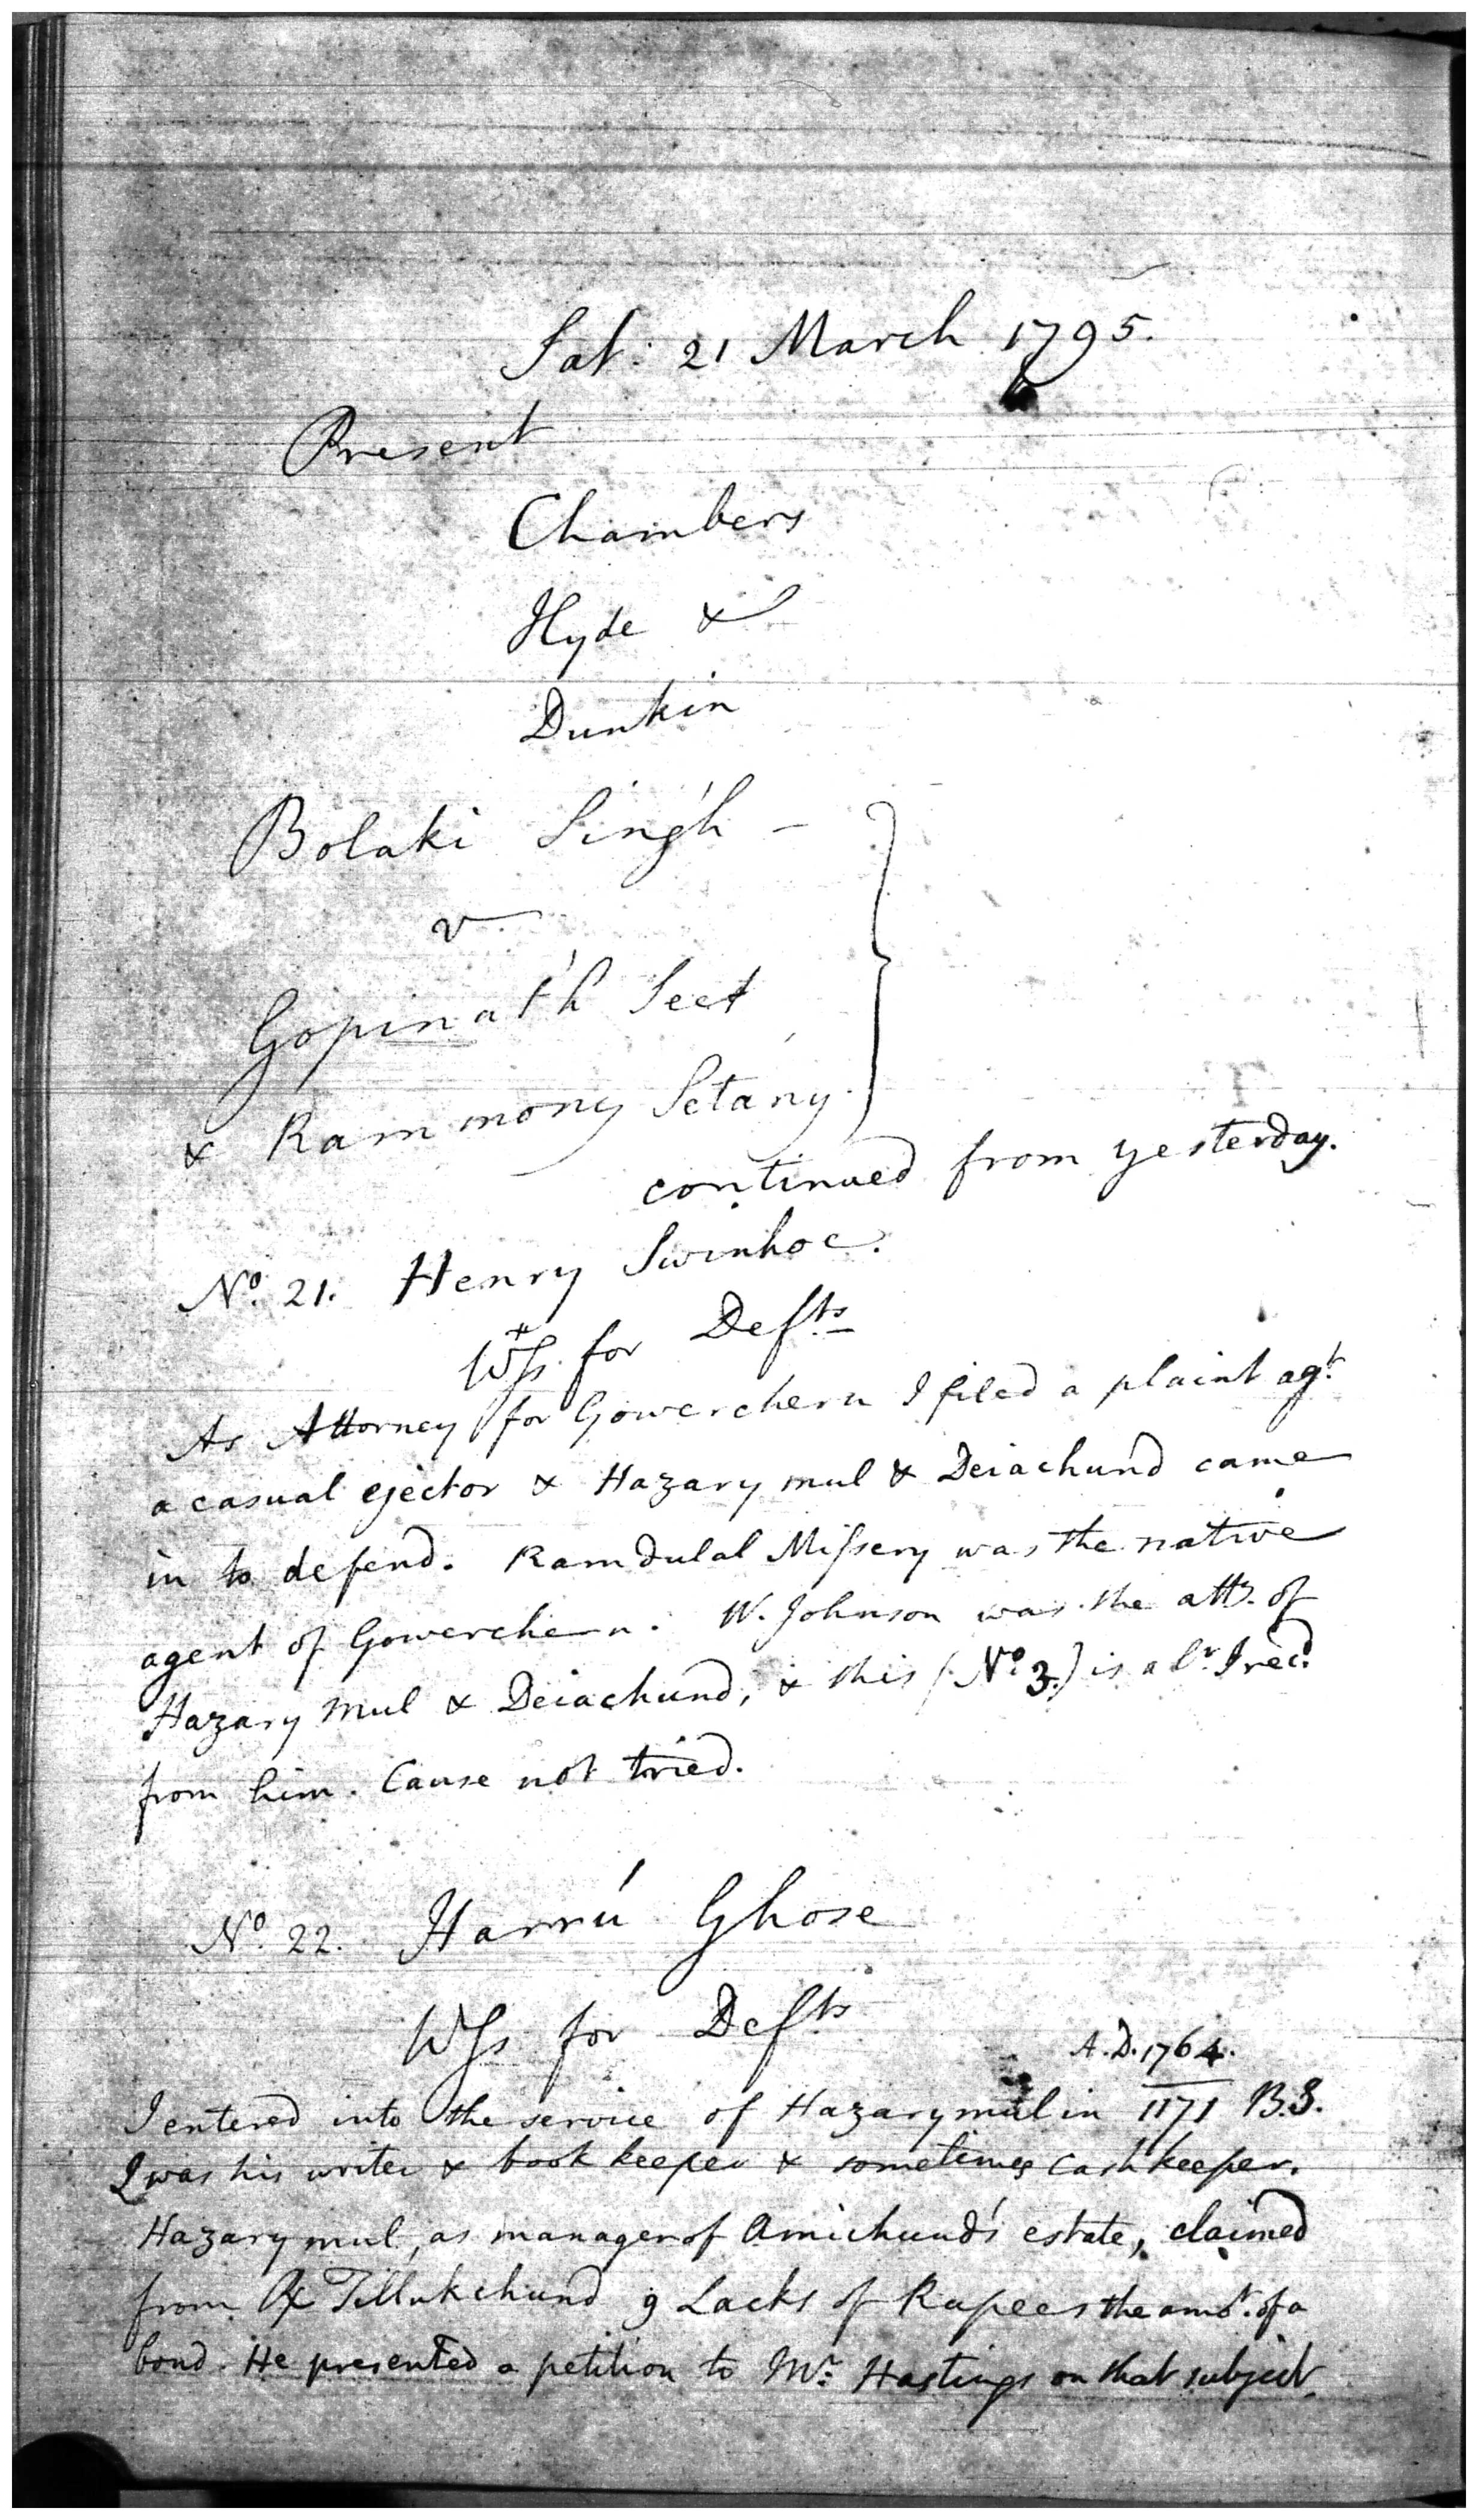 Sat: 21 March 1795.
Present
Chambers
Hyde &
Dunkin
Bolaki Singh –
v.
Gopinath Seet
& Rammony Setány.
continued from yesterday.
No. 21. Henry Swinhoe.
Wss. for Defts
As Attorney for Gowerchern I filed a plaint agt.
a casual ejector & Hazary mul & Deiachund came
in to defend. Ramdulal Missery was the native
agent of Gowerchern. W. Johnson was the atty. of
Hazary Mul & Deiachund, & this (No. 3.) is a lr. I recd.
from him. Cause not tried.
No. 22. Harrú Ghose
Wss for Defts
A.D. 1764.
I entered into the service of Hazarymul in 1171 B.S.
I was his writer & book keeper & sometimes cash keeper.
Hazarymul, as manager of Amichund's estate, claimed
from Tillukchund 9 Lacks of Rupees the amt. of a
bond. He presented a petition to Mr. Hastings on that subject.